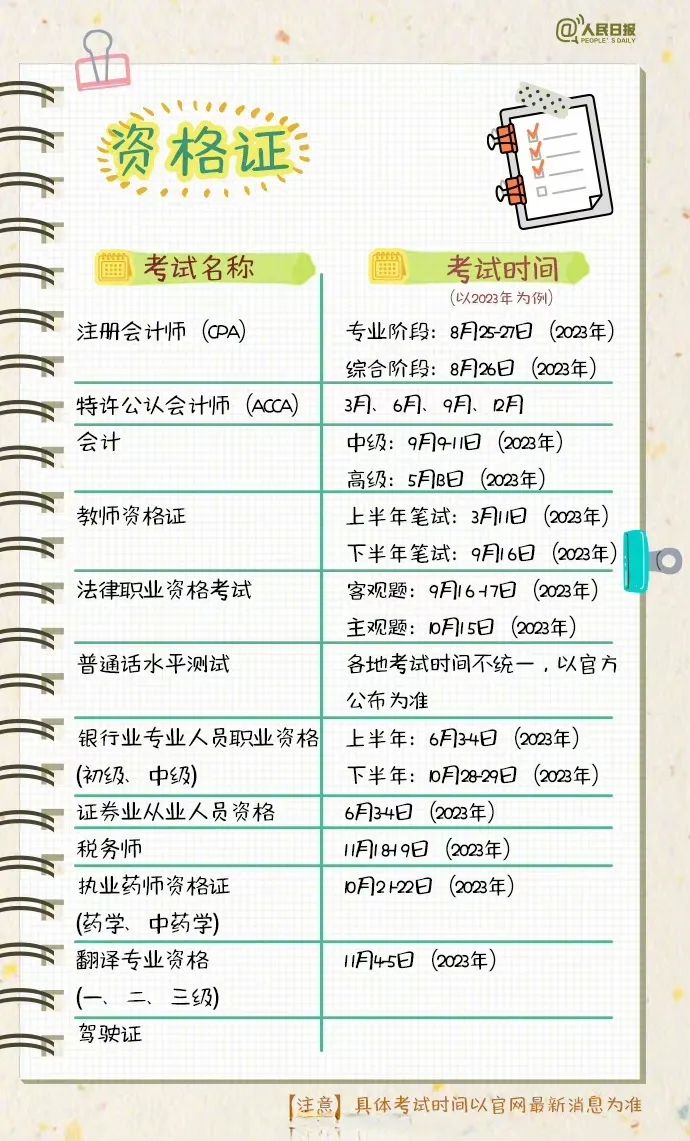 @人民日报
PEOPLE'S DAILY
资格证
考试名称
考试时间
(以2023年为例)
注册会计师（CPA）
专业阶段：8月25-27日（2023年）
综合阶段：8月26日（2023年）
特许公认会计师（ACCA）
3月、6月、9月、12月
会计
中级：9月9-11日（2023年）
高级：5月13日（2023年）
教师资格证
上半年笔试：3月11日（2023年）
下半年笔试：9月16日（2023年）
法律职业资格考试
客观题：9月16-17日（2023年）
主观题：10月15日（2023年）
普通话水平测试
各地考试时间不统一，以官方
公布为准
银行业专业人员职业资格
(初级、中级)
上半年：6月3-4日（2023年）
下半年：10月28-29日（2023年）
证券业从业人员资格
6月3-4日（2023年）
税务师
11月18-19日（2023年）
执业药师资格证
(药学、中药学)
10月21-22日（2023年）
翻译专业资格
(一、二、三级)
11月4-5日（2023年）
驾驶证
【注意】具体考试时间以官网最新消息为准